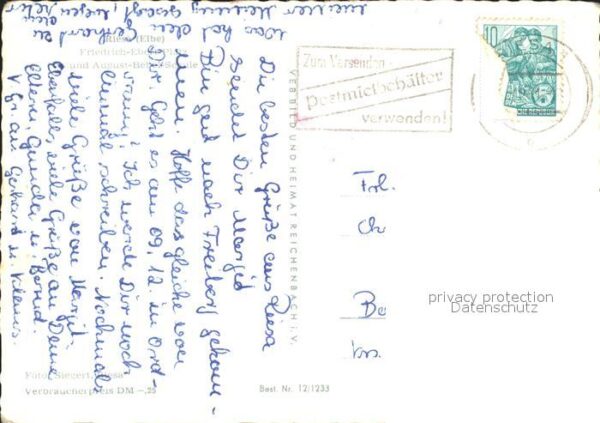 Riesa (Elbe)
Friedrich-Ebert-Platz
und August-Bebel-Schule
Die besten Grüße aus Riesa
sendet Dir Margid
Bin gut nach Freiberg gekom-
men. Hoffe das gleiche von
Dir. Geht es am 09.12. in Ord-
nung? Ich werde Dir noch
einmal schreiben. Nochmals
viele Grüße von Margit.
Ebenfalls viele Grüße an Deine
Eltern, Gunda u. Bernd.
Gerhard u. Klaus.
Was hat
Gerhard zu
Foto: Siegert, Riesa
Verbraucherpreis DM -,25
VEB BILD UND HEIMAT REICHENBACH i. V.
Best. Nr. 12/1233
Zum Versenden
Postmietbehälter
verwenden!
10
5
Frl.
Ch
Be
Krs.
privacy protection
Datenschutz